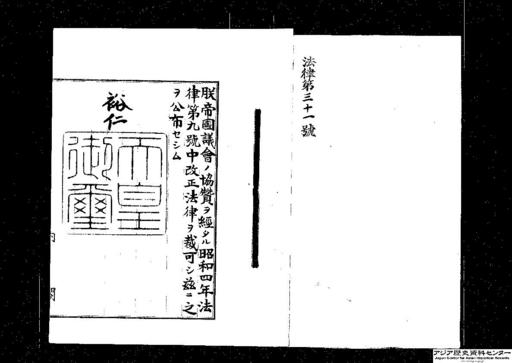 法律第三十一號
朕帝國議會ノ協贊ヲ經タル昭和四年法
律第九號中改正法律ヲ裁可シ茲ニ之
ヲ公布セシム
裕仁
天皇
御璽
内閣
アジア歴史資料センター
Japan Center for Asian Historical Records